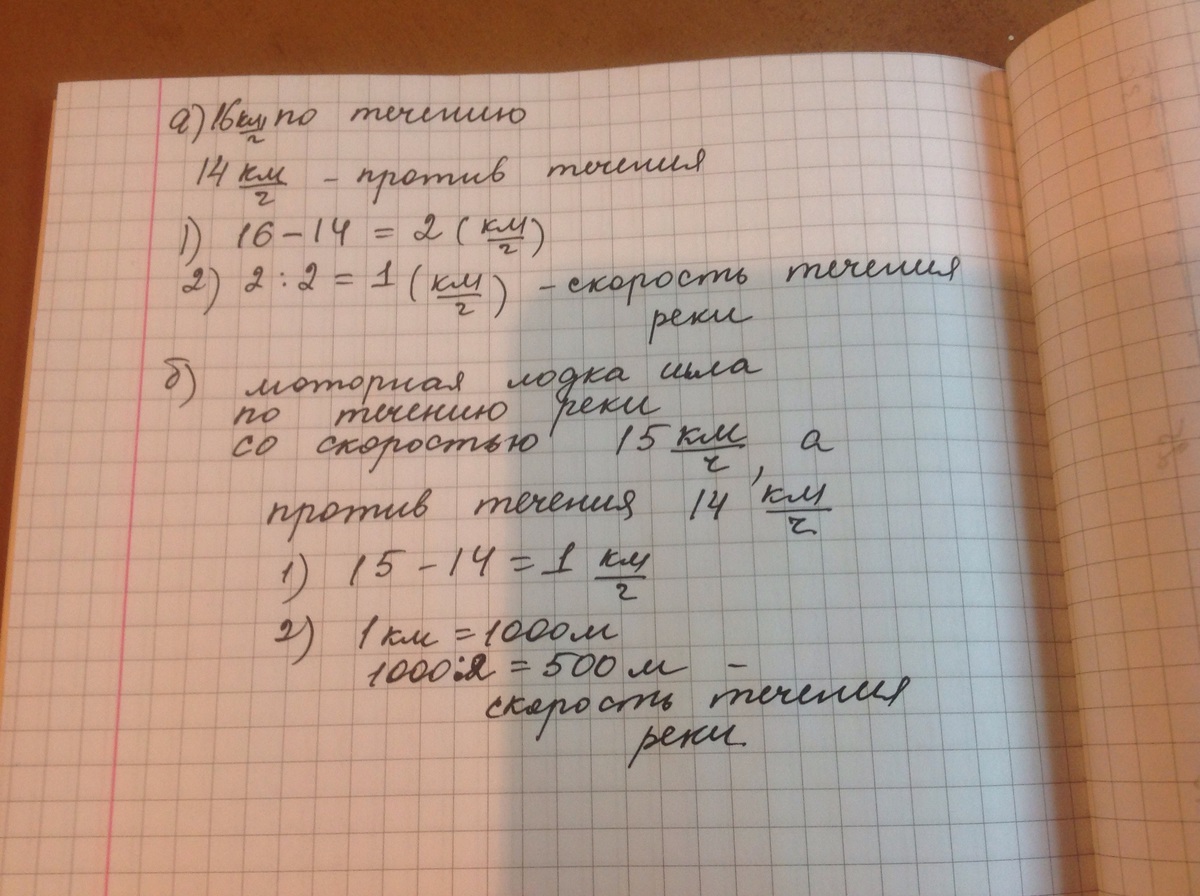 а) 16 км/ч по течению
14 км/ч – против течения
1) 16 – 14 = 2 (км/ч)
2) 2 : 2 = 1 (км/ч) – скорость течения
реки
б) моторная лодка шла
по течению реки
со скоростью 15 км/ч, а
против течения 14 км/ч
1) 15 – 14 = 1 км/ч
2) 1 км = 1000 м
1000 : 2 = 500 м –
скорость течения
реки